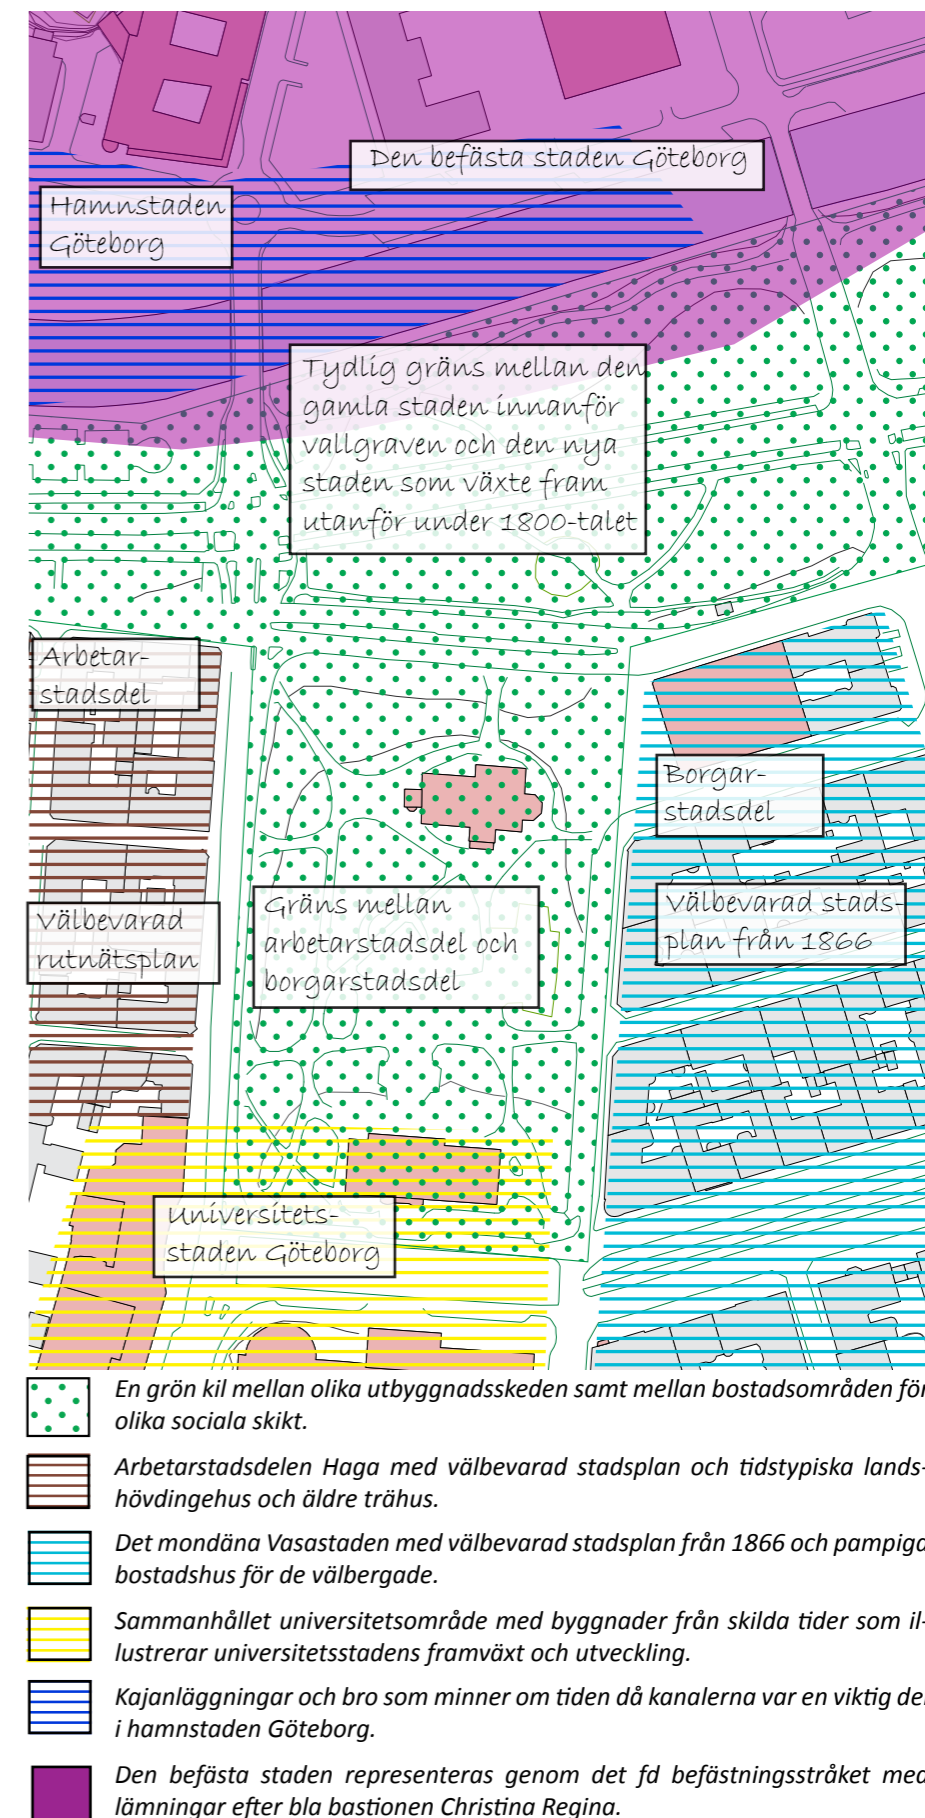 Den befästa staden Göteborg
Hamnstaden
Göteborg
Tydlig gräns mellan den
gamla staden innanför
vallgraven och den nya
staden som växte fram
utanför under 1800-talet
Arbetar-
stadsdel
Borgar-
stadsdel
Välbevarad
rutnätsplan
Gräns mellan
arbetarstadsdel och
borgarstadsdel
Välbevarad stads-
plan från 1866
Universitets-
staden Göteborg
En grön kil mellan olika utbyggnadsskeden samt mellan bostadsområden för
olika sociala skikt.
Arbetarstadsdelen Haga med välbevarad stadsplan och tidstypiska lands-
hövdingehus och äldre trähus.
Det mondäna Vasastaden med välbevarad stadsplan från 1866 och pampiga
bostadshus för de välbergade.
Sammanhållet universitetsområde med byggnader från skilda tider som il-
lustrerar universitetsstadens framväxt och utveckling.
Kajanläggningar och bro som minner om tiden då kanalerna var en viktig del
i hamnstaden Göteborg.
Den befästa staden representeras genom det fd befästningsstråket med
lämningar efter bla bastionen Christina Regina.